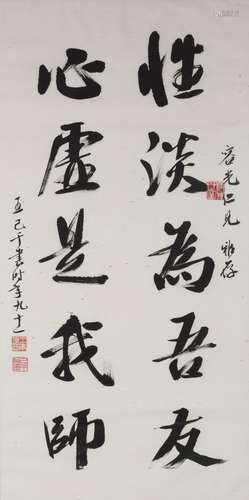 性淡為吾友
光仁兄 雅存
心虛是我師
王己千書時年九十一